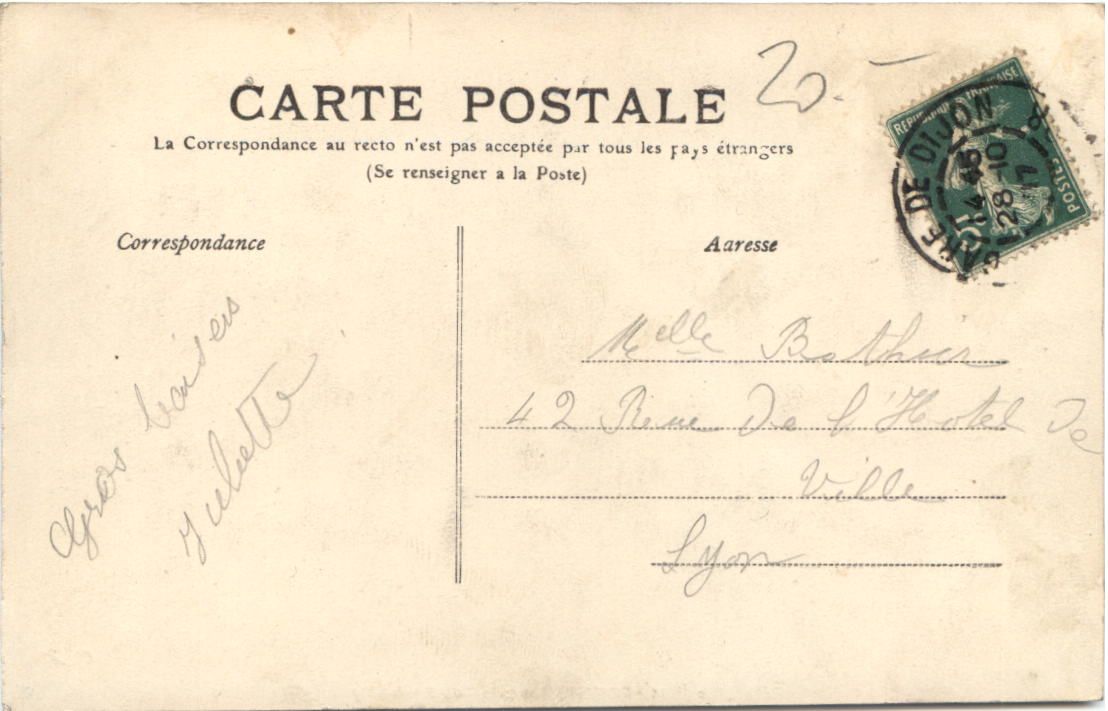 CARTE POSTALE
20.-
La Correspondance au recto n'est pas acceptée par tous les pays étrangers
(Se renseigner a la Poste)
REPUBLIQUE FRANÇAISE
POSTES
GARE DE DIJON
14 45
28-10
Correspondance
Gros baisers
Juliette
Adresse
Melle
42 Rue De l'Hotel De
Ville
Lyon